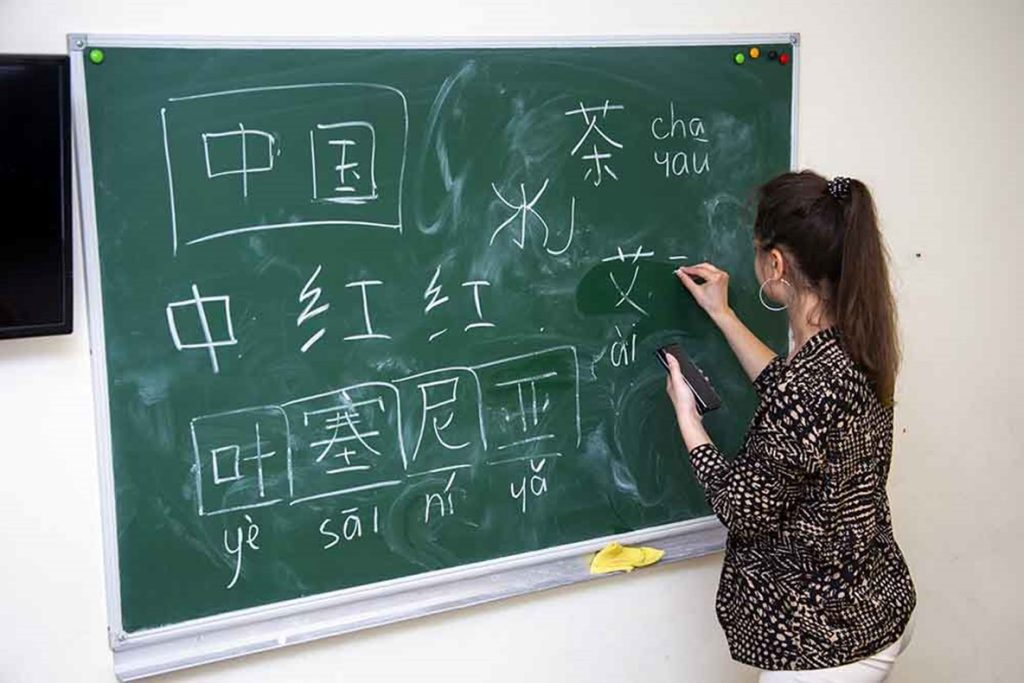 中国
茶 cha
yaū
艾
ài
中 红 红
叶塞尼亚
yè sāi ní yǎ